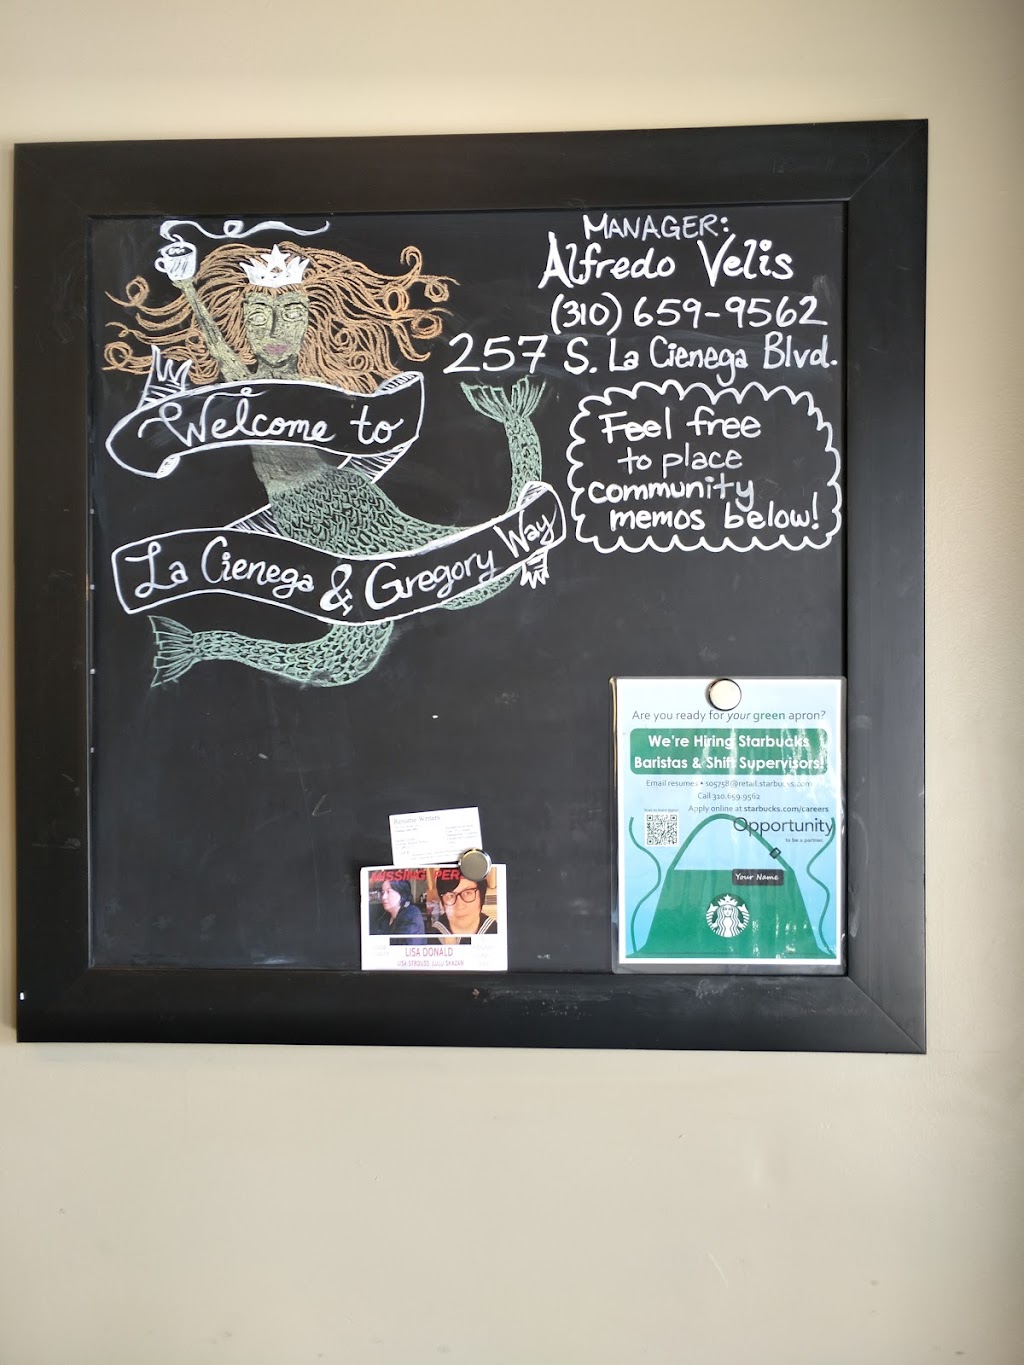 MANAGER:
Alfredo Velis
(310) 659-9562
257 S. La Cienega Blvd.
Welcome to
La Cienega & Gregory Way
Feel free
to place
community
memos below!
Are you ready for your green apron?
We're Hiring Starbucks
Baristas & Shift Supervisors!
Email resumes • s05758@retail.starbucks.com
Call 310.659.9562
Apply online at starbucks.com/careers
Opportunity
to be a partner.
Your Name
Resume Writers
MISSING PER
LISA DONALD
LISA STROUSS, LULU SKAZAN